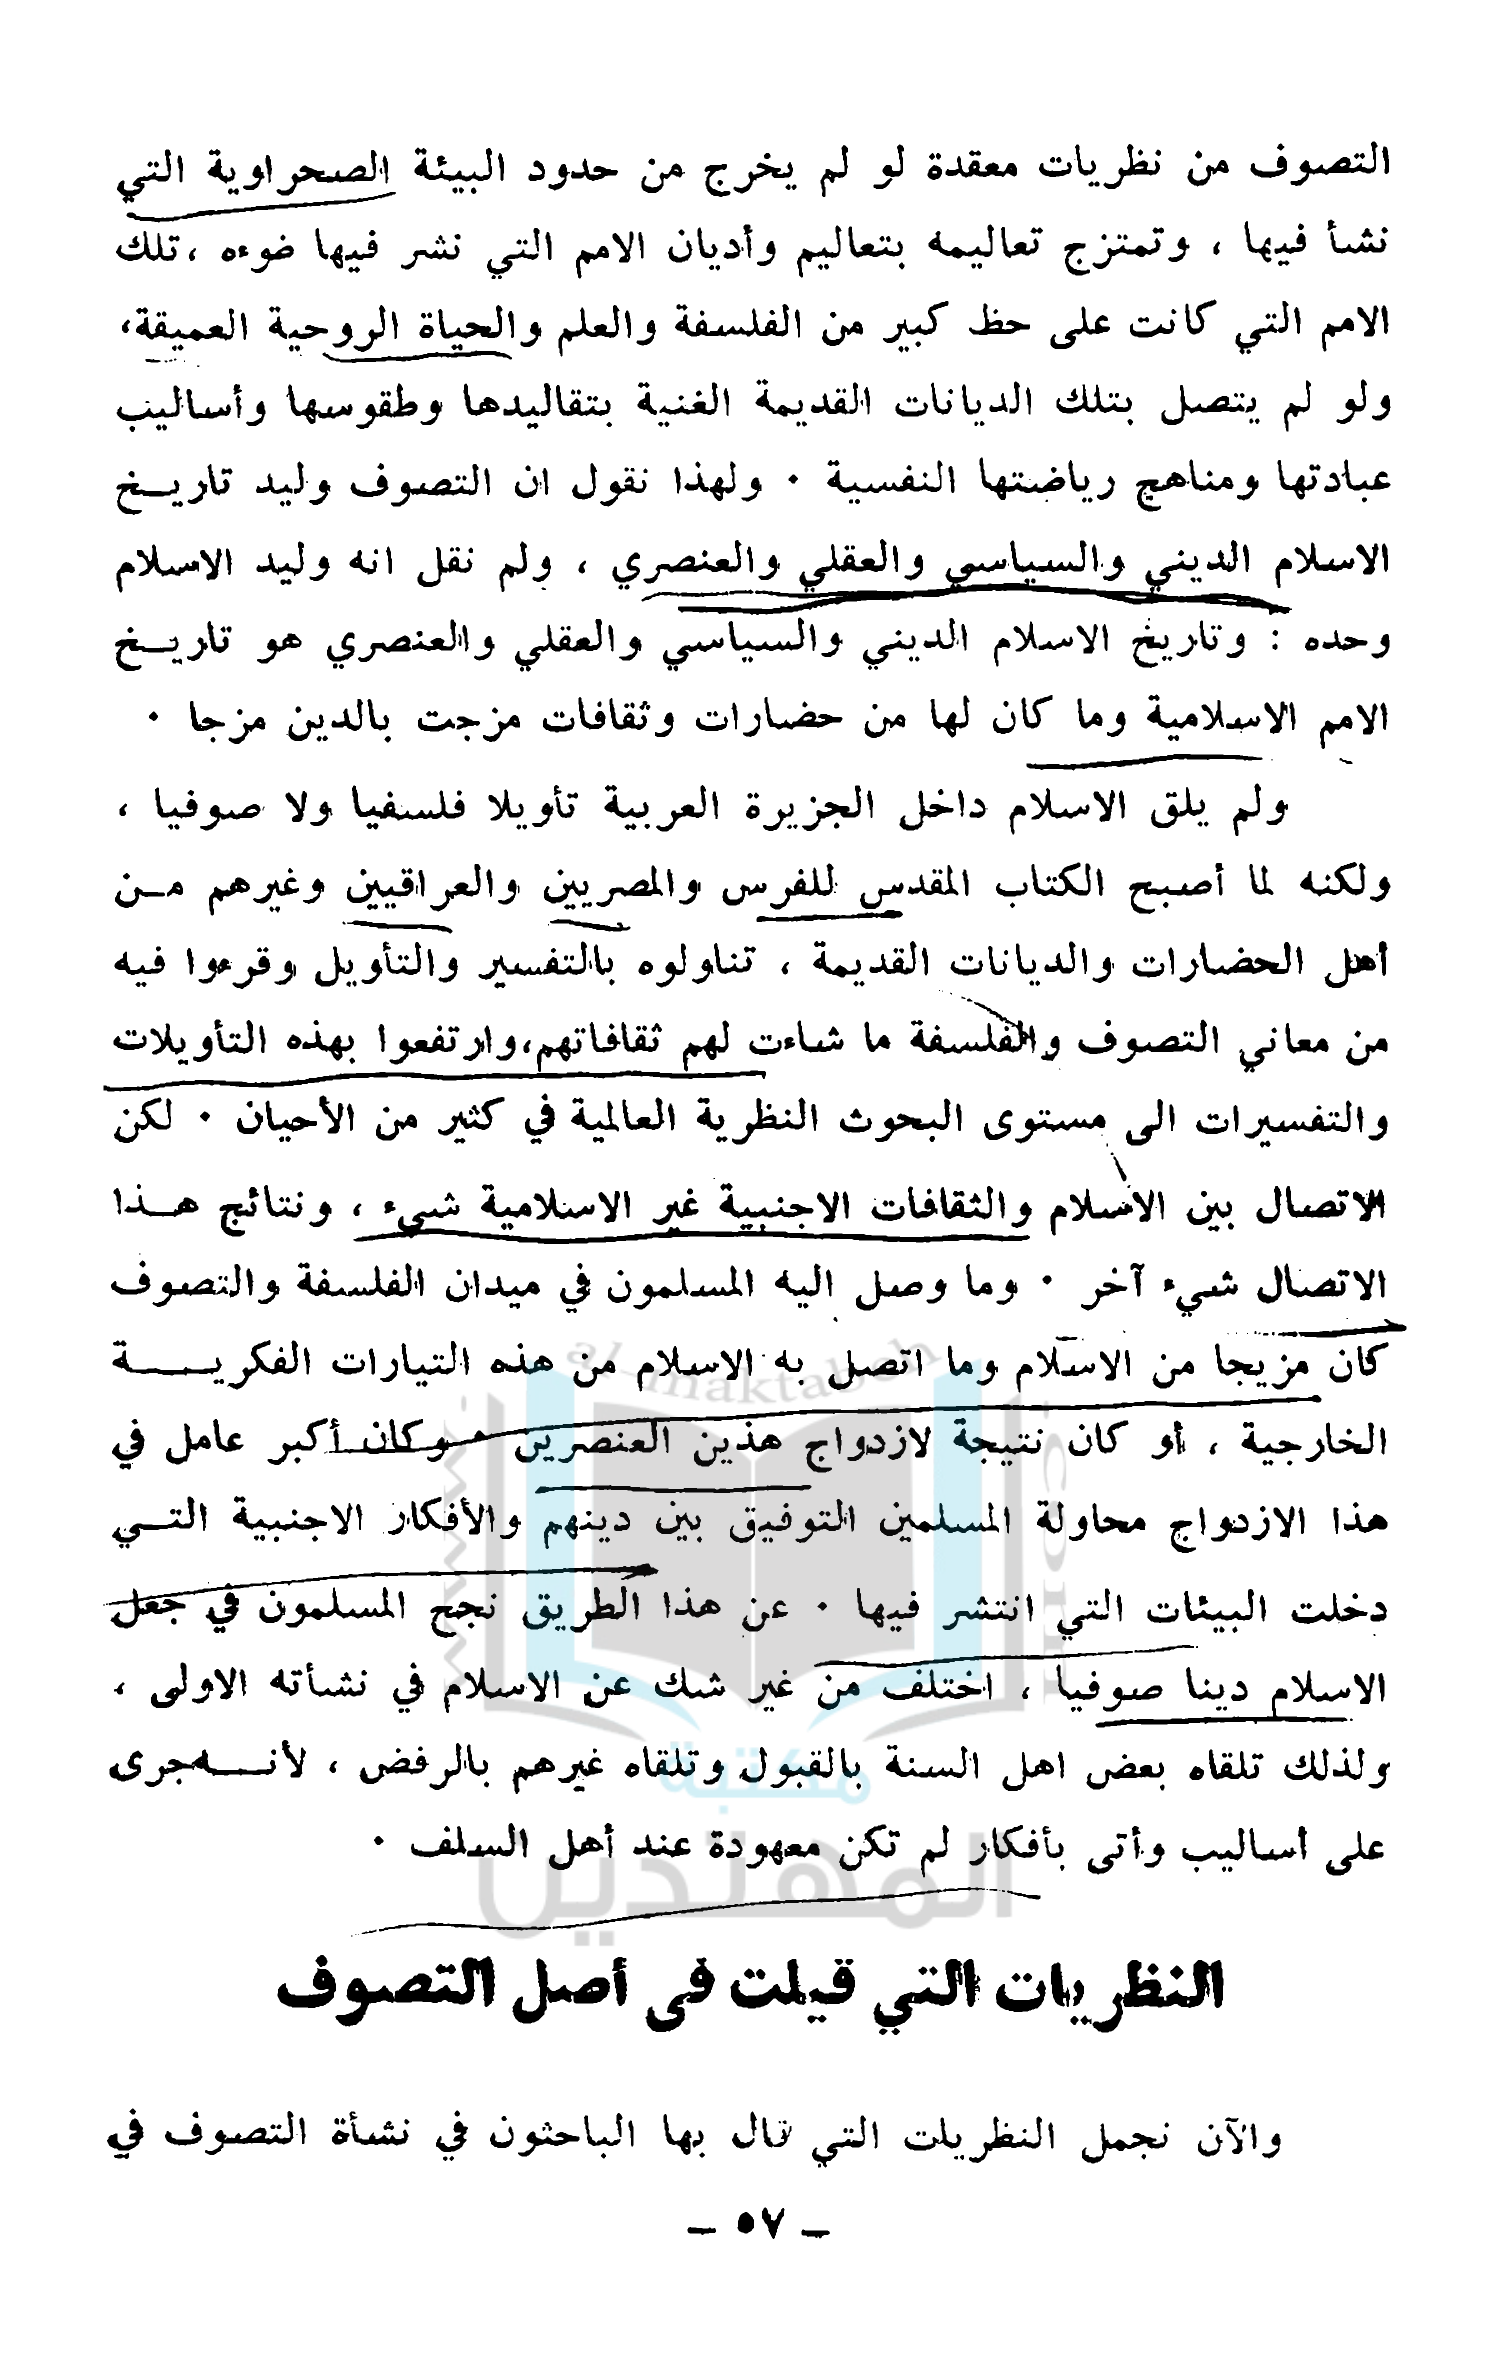 التصوف من نظريات معقدة لو لم يخرج من حدود البيئة الصحراوية التي
نشأ فيها ، وتمتزج تعاليمه بتعاليم وأديان الامم التي نشر فيها ضوءه ،تلك
الامم التي كانت على حظ كبير من الفلسفة والعلم والحياة الروحية العميقة،
ولو لم يتصل بتلك الديانات القديمة الغنية بتقاليدها وطقوسها وأساليب
عبادتها ومناهج رياضتها النفسية ٠ ولهذا نقول ان التصوف وليد تاريـخ
الاسلام الديني والسياسي والعقلي والعنصري ، ولم نقل انه وليد الاسلام
وحده : وتاريخ الاسلام الديني والسياسي والعقلي والعنصري هو تاريـخ
الامم الاسلامية وما كان لها من حضارات وثقافات مزجت بالدين مزجا ٠
ولم يلق الاسلام داخل الجزيرة العربية تأويلا فلسفيا ولا صوفيا ،
ولكنه لما أصبح الكتاب المقدس للفرس والمصريين والعراقيين وغيرهم مـن
أهل الحضارات والديانات القديمة ، تناولوه بالتفسير والتأويل وقرءوا فيه
من معاني التصوف والفلسفة ما شاءت لهم ثقافاتهم،وارتفعوا بهذه التأويلات
والتفسيرات الى مستوى البحوث النظرية العالمية في كثير من الأحيان ٠ لكن
الاتصال بين الاسلام والثقافات الاجنبية غير الاسلامية شيء ، ونتائج هـذا
الاتصال شيء آخر ٠ وما وصل اليه المسلمون في ميدان الفلسفة والتصوف
كان مزيجا من الاسلام وما اتصل به الاسلام من هذه التيارات الفكريــــة
الخارجية ، أو كان نتيجة لازدواج هذين العنصرين ٠ وكان أكبر عامل في
هذا الازدواج محاولة المسلمين التوفيق بين دينهم والأفكار الاجنبية التـي
دخلت البيئات التي انتشر فيها ٠ عن هذا الطريق نجح المسلمون في جعل
الاسلام دينا صوفيا ، اختلف من غير شك عن الاسلام في نشأته الاولى ،
ولذلك تلقاه بعض اهل السنة بالقبول وتلقاه غيرهم بالرفض ، لأنـــه جرى
على أساليب وأتى بأفكار لم تكن معهودة عند أهل السلف ٠
النظريات التي قيلت فى أصل التصوف
والآن نجمل النظريات التي قال بها الباحثون في نشأة التصوف في
– ٥٧ –
al-maktabeh
مكتبة
المهتدين